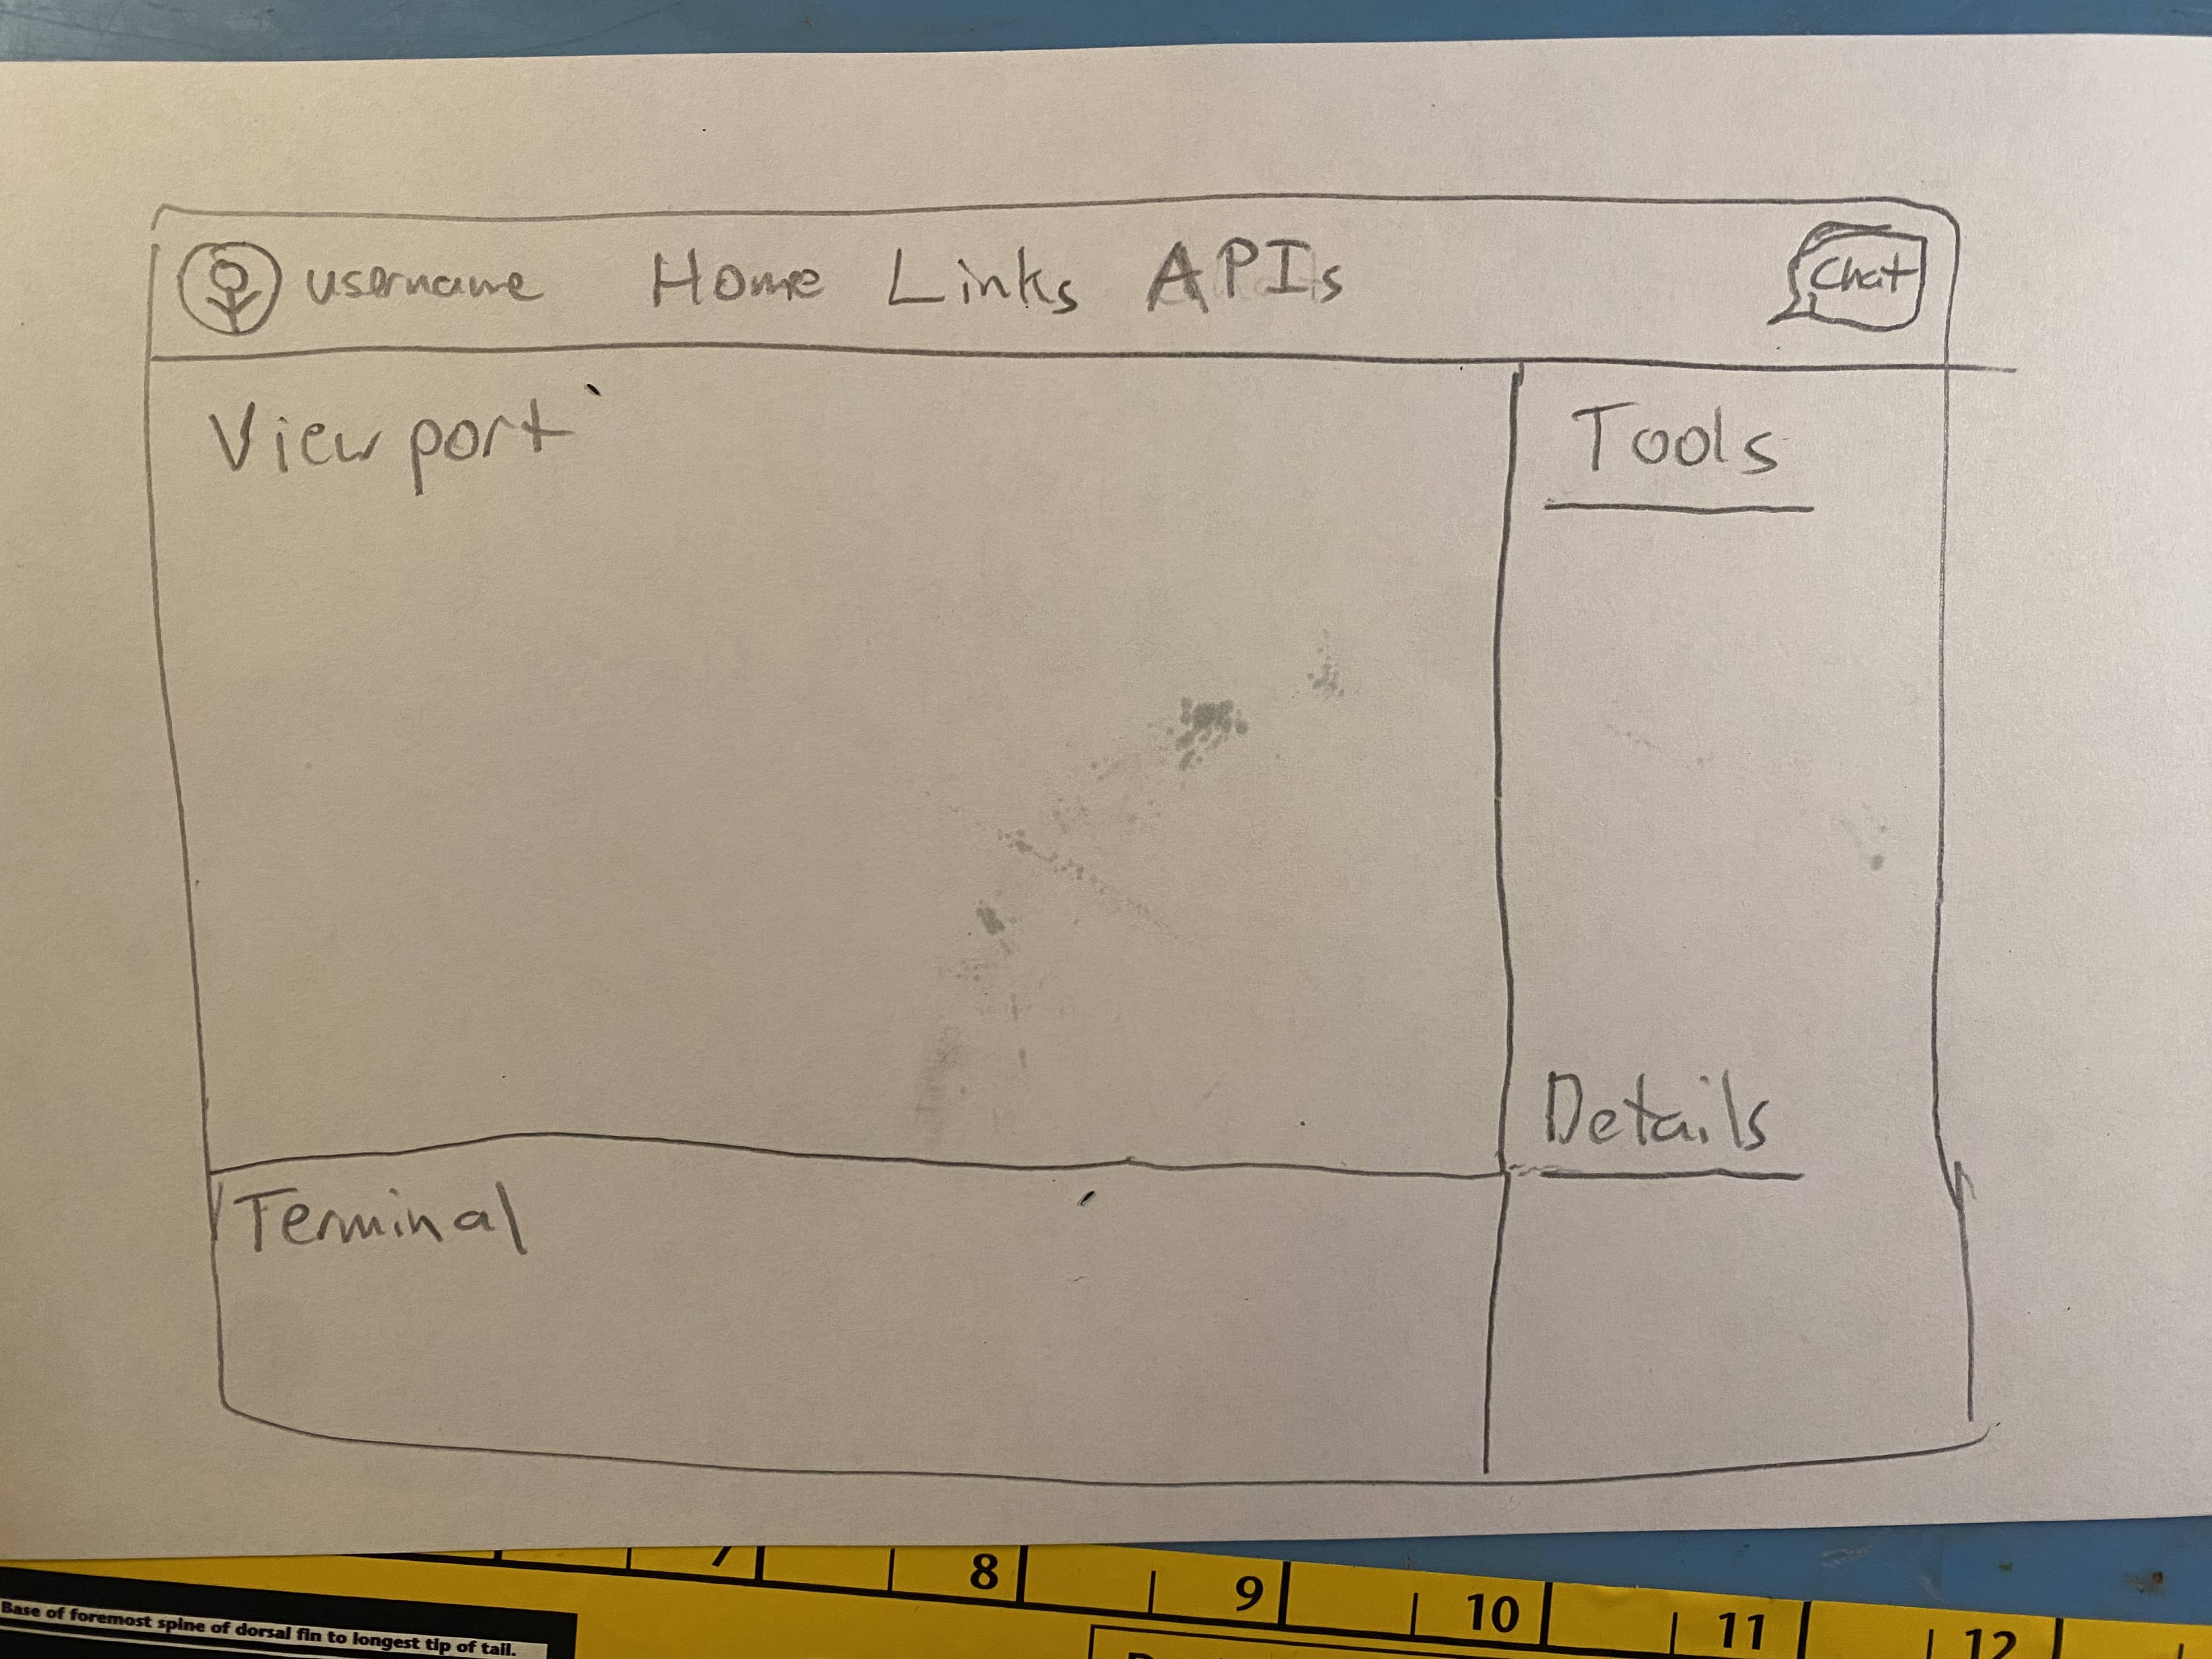 username Home Links APIs Chat
Viewport
Tools
Details
Terminal
7 8 9 10 11 12
Base of foremost spine of dorsal fin to longest tip of tail.